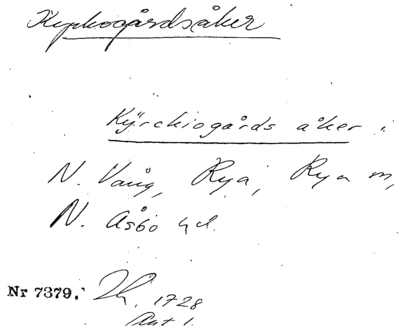 Kyrkogårdsåker
Kÿrckiogårds åker i
N. Vång, Rya, Rya sn,
N. Åsbo hd.
Nr 7379. 1728
Akt 1.